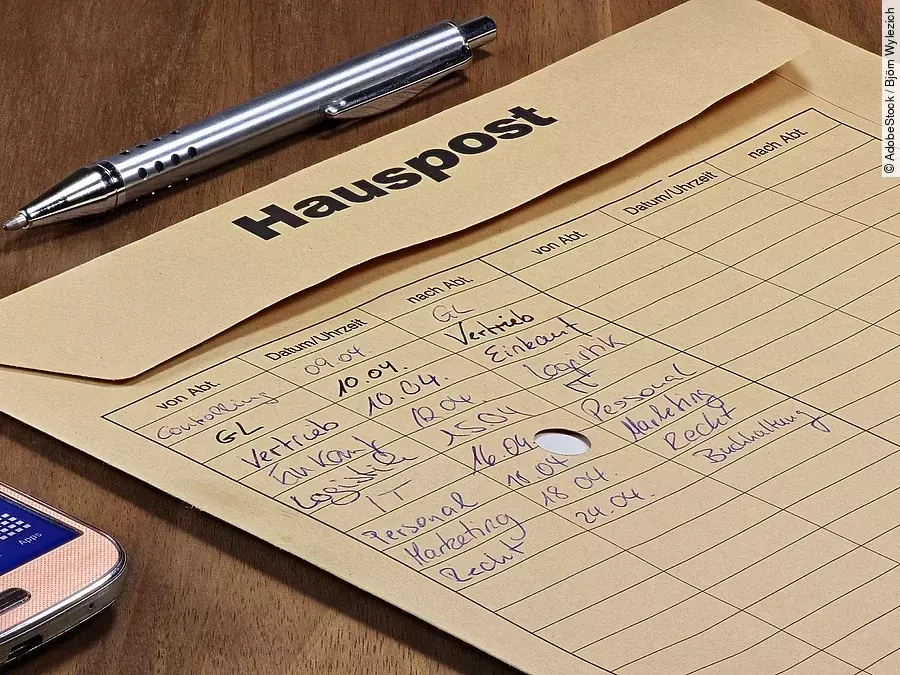 Hauspost
von Abt. Datum/Uhrzeit nach Abt. von Abt. Datum/Uhrzeit nach Abt.
Controlling 09.04. GL
GL 10.04. Vertrieb
Vertrieb 10.04. Einkauf
Einkauf 12.04. Logistik
Logistik 15.04 IT
IT 16.04. Personal
Personal 18.04 Marketing
Marketing 18 04. Recht
Recht 24.04. Buchhaltung
Apps
© AdobeStock / Björn Wylezich